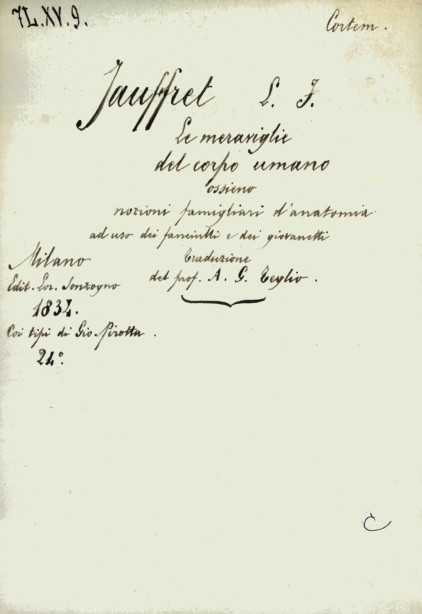 7L.XV.9.
Cortem.
Jauffret L. J.
Le meraviglie
del corpo umano
ossieno
nozioni famigliari d'anatomia
ad uso dei fanciulli e dei giovanetti
Traduzione
del prof. A. G. Teglio.
Milano
Edit. Lor. Sonzogno
1834.
Coi tipi di Gio. Pirotta.
24°.
C